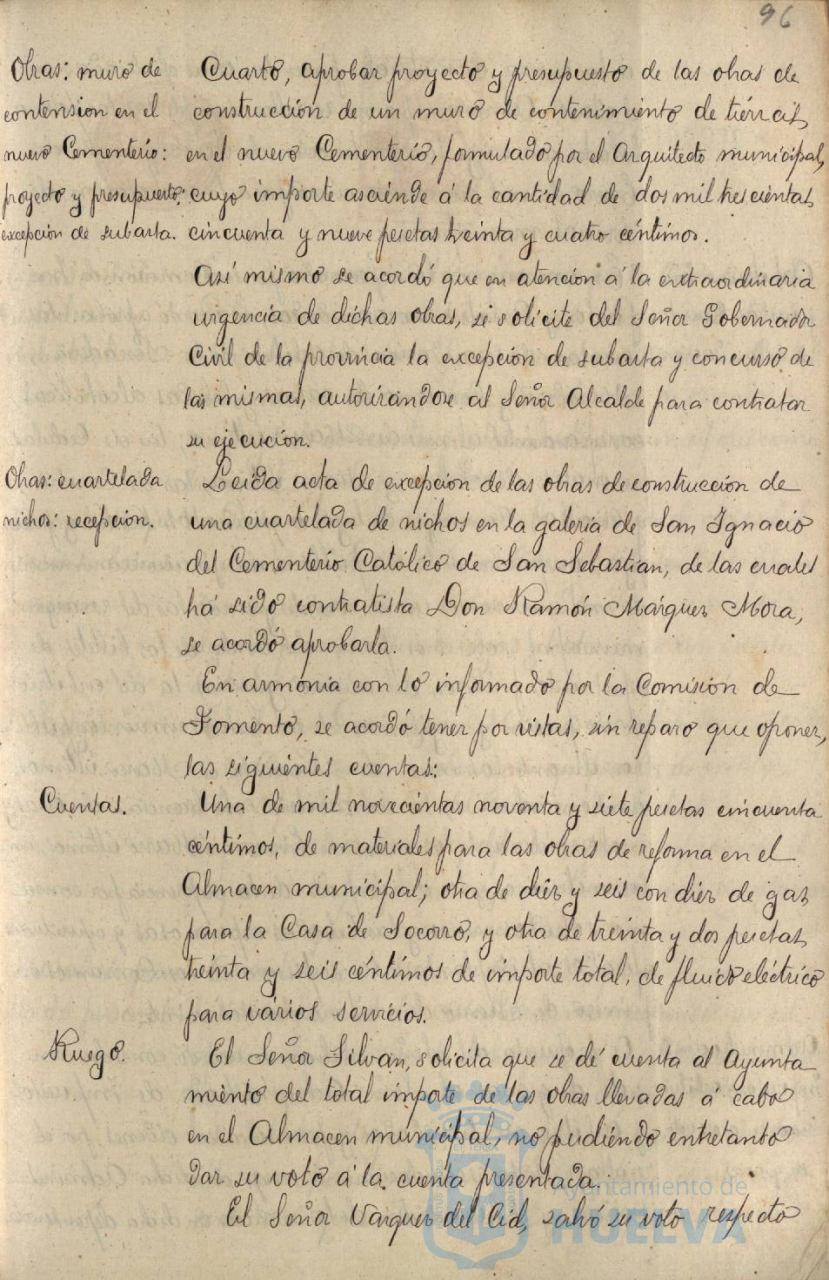 96
Obras: muro de
contension en el
nuevo Cementerio:
proyecto y presupuesto:
excepción de subasta.
Cuarto, aprobar proyecto y presupuesto de las obras de
construcción de un muro de contenimiento de tierras,
en el nuevo Cementerio, formulado por el Arquitecto municipal,
cuyo importe asciende á la cantidad de dos mil trescientas
cincuenta y nueve pesetas treinta y cuatro céntimos.
Así mismo se acordó que en atencion á la extraordinaria
urgencia de dichas obras, se solicite del Señor Gobernador
Civil de la provincia la excepción de subasta y concurso de
las mismas, autorizándose al Señor Alcalde para contratar
su ejecución.
Obras: cuartelada
nichos: recepcion.
Leida acta de excepcion de las obras de construccion de
una cuartelada de nichos en la galeria de San Ignacio
del Cementerio Católico de San Sebastian, de las cuales
há sido contratista Don Ramón Márquez Mora,
se acordó aprobarla.
En armonia con lo informado por la Comision de
Fomento, se acordó tener por vistas, sin reparo que oponer,
las siguientes cuentas:
Cuentas.
Una de mil novecientas noventa y siete pesetas cincuenta
céntimos, de materiales para las obras de reforma en el
Almacen municipal; otra de diéz y seis con diéz de gas
para la Casa de Socorro, y otra de treinta y dos pesetas,
treinta y seis céntimos de importe total, de fluido eléctrico
para vários servicios.
Ruego.
El Señor Silvan, solicita que se dé cuenta al Ayunta
miento del total importe de las obras llevadas á cabo
en el Almacen municipal, no pudiendo entretanto
dar su voto á la cuenta presentada.
El Señor Vazquez del Cid, salvó su voto respecto
Ayuntamiento de
HUELVA